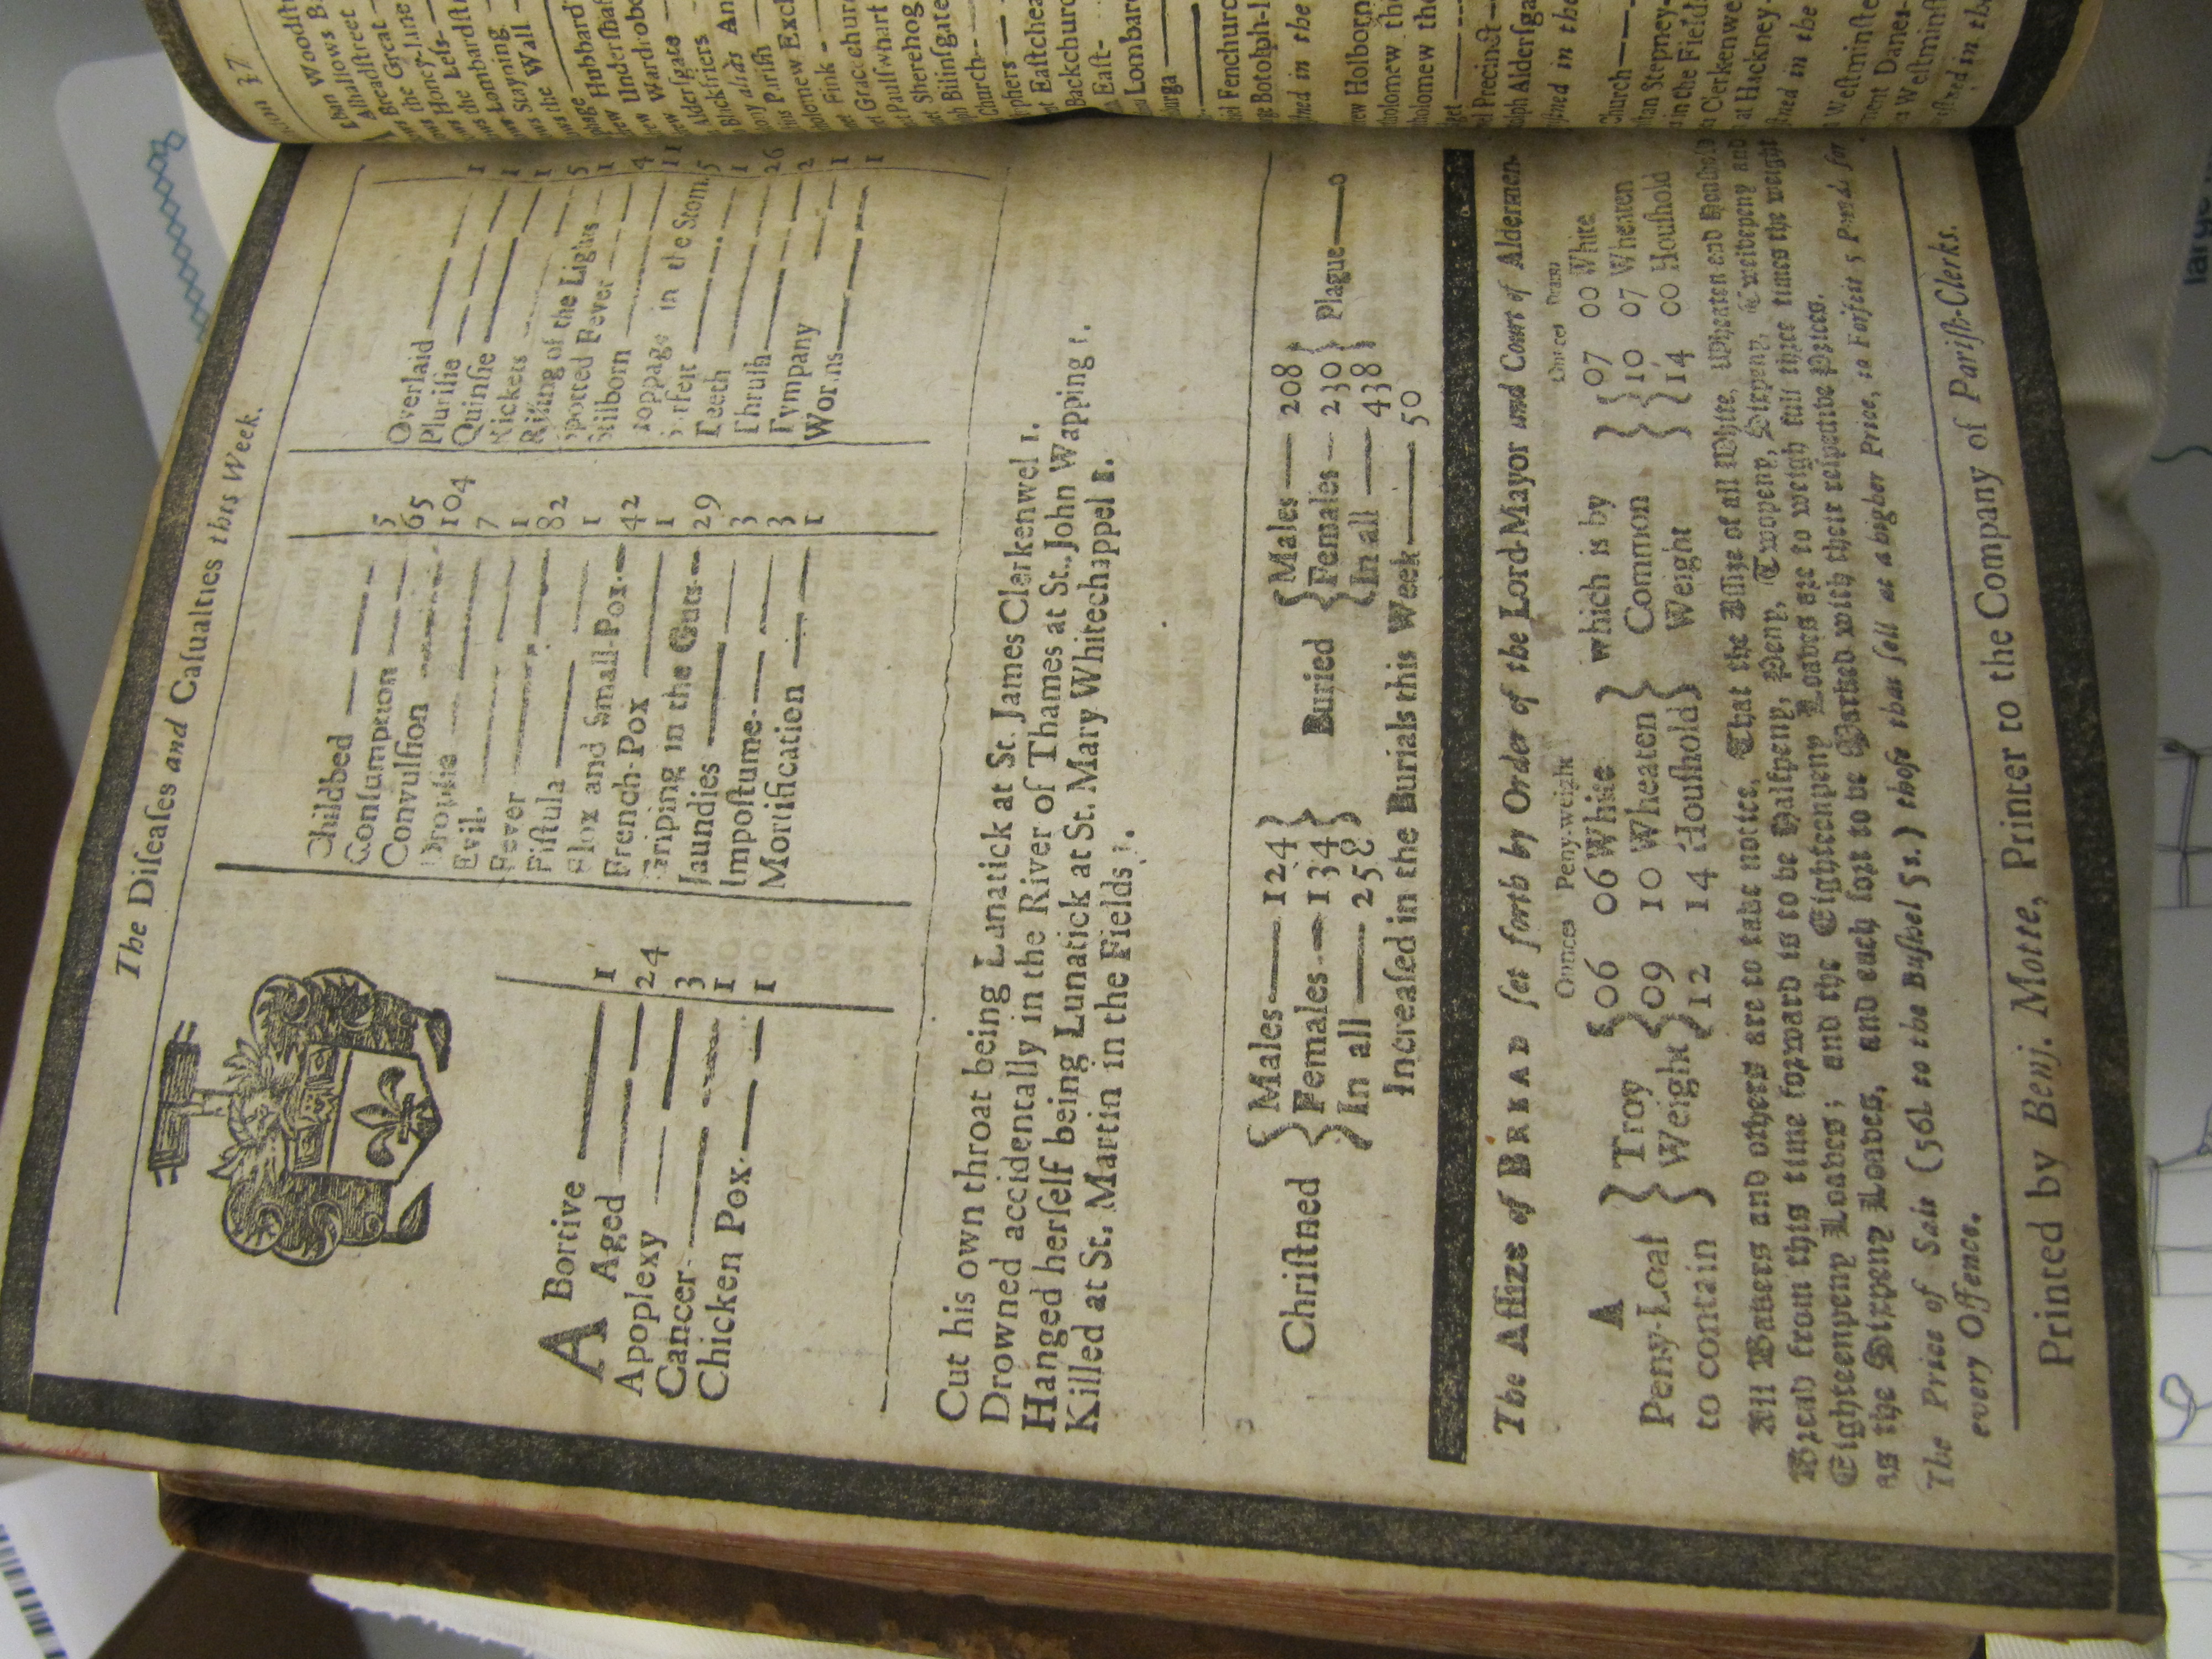 The Diſeaſes and Caſualties this Week.
A Bortive 1
Aged 24
Apoplexy 3
Cancer 1
Chicken Pox 1
Childbed 5
Conſumption 65
Convulſion 104
Dropſie 7
Evil 1
Fever 82
Fiſtula 1
Flox and Small-Pox 42
French-Pox 1
Griping in the Guts 29
Jaundies 3
Impoſtume 3
Mortification 1
Overlaid 1
Pluriſie 1
Quinſie 1
Rickets 5
Riſing of the Lights 1
Spotted Fever 4
Stilborn 11
Stoppage in the Stom. 5
Surfeit 1
Teeth 26
Thruſh 2
Tympany 1
Worms 1
Cut his own throat being Lunatick at St. James Clerkenwel 1.
Drowned accidentally in the River of Thames at St. John Wapping 1.
Hanged herſelf being Lunatick at St. Mary Whitechappel 1.
Killed at St. Martin in the Fields 1.
Chriſtned { Males — 124 } Buried { Males — 208 } Plague — 0
{ Females — 134 } { Females — 230 }
{ In all — 258 } { In all — 438 }
Increaſed in the Burials this Week — 50
The Aſſize of BREAD ſet forth by Order of the Lord-Mayor and Court of Aldermen
Ounces Peny-weight Ounces Dram
A } Troy { 06 06 White } which is by { 07 00 White
Peny-Loaf } Weight { 09 10 Wheaten } Common { 10 07 Wheaten
to contain { 12 14 Houſhold } Weight { 14 00 Houſhold
All Bakers and others are to take notice, That the Aſſize of all White, Wheaten and Houſhold
Bread from this time forward is to be Halfpeny, Peny, Twopeny, Sixpeny, Twelvepeny and
Eighteenpeny Loaves; and the Eighteenpeny Loaves are to weigh full thice times the weight
as the Sixpeny Loaves, and each ſort to be Marked with their reſpective Prices.
The Price of Salt (56l. to the Buſhel 5s.) thoſe that ſell at a higher Price, to Forfeit 5 Pound for
every Offence.
Printed by Benj. Motte, Printer to the Company of Pariſh-Clerks.